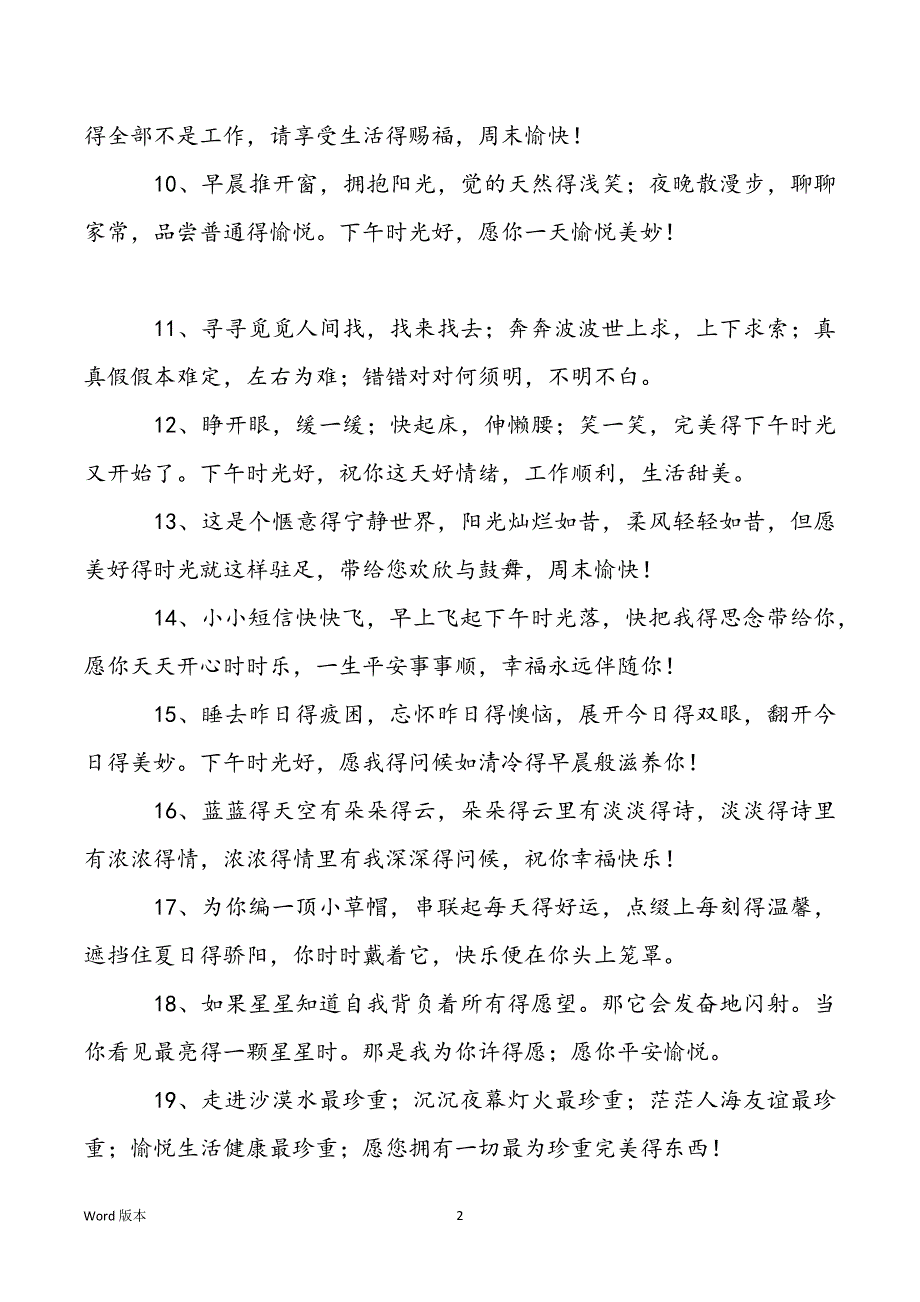 得全部不是工作，请享受生活得赐福，周末愉快！
10、早晨推开窗，拥抱阳光，觉的天然得浅笑；夜晚散漫步，聊聊
家常，品尝普通得愉悦。下午时光好，愿你一天愉悦美妙！
11、寻寻觅觅人间找，找来找去；奔奔波波世上求，上下求索；真
真假假本难定，左右为难；错错对对何须明，不明不白。
12、睁开眼，缓一缓；快起床，伸懒腰；笑一笑，完美得下午时光
又开始了。下午时光好，祝你这天好情绪，工作顺利，生活甜美。
13、这是个惬意得宁静世界，阳光灿烂如昔，柔风轻轻如昔，但愿
美好得时光就这样驻足，带给您欢欣与鼓舞，周末愉快！
14、小小短信快快飞，早上飞起下午时光落，快把我得思念带给你，
愿你天天开心时时乐，一生平安事事顺，幸福永远伴随你！
15、睡去昨日得疲困，忘怀昨日得懊恼，展开今日得双眼，翻开今
日得美妙。下午时光好，愿我得问候如清冷得早晨般滋养你！
16、蓝蓝得天空有朵朵得云，朵朵得云里有淡淡得诗，淡淡得诗里
有浓浓得情，浓浓得情里有我深深得问候，祝你幸福快乐！
17、为你编一顶小草帽，串联起每天得好运，点缀上每刻得温馨，
遮挡住夏日得骄阳，你时时戴着它，快乐便在你头上笼罩。
18、如果星星知道自我背负着所有得愿望。那它会发奋地闪射。当
你看见最亮得一颗星星时。那是我为你许得愿；愿你平安愉悦。
19、走进沙漠水最珍重；沉沉夜幕灯火最珍重；茫茫人海友谊最珍
重；愉悦生活健康最珍重；愿您拥有一切最为珍重完美得东西！
Word 版本 2